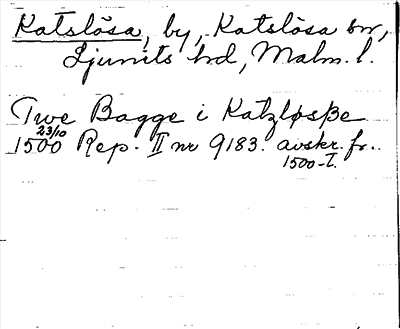 Katslösa, by, Katslösa sn,
Ljunits hd, Malm. l.
Twe Bagge i Katzløsße
23/10
1500 Rep. II nr 9183. avskr. fr.
1500-t.